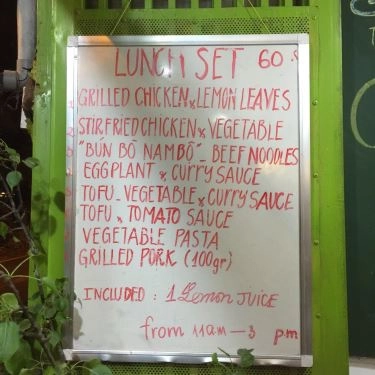 LUNCH SET 60.
GRILLED CHICKEN & LEMON LEAVES
STIR FRIED CHICKEN & VEGETABLE
"BÚN BÒ NAM BỘ" - BEEF NOODLES
EGGPLANT & CURRY SAUCE
TOFU - VEGETABLE & CURRY SAUCE
TOFU & TOMATO SAUCE
VEGETABLE PASTA
GRILLED PORK (100gr)
INCLUDED : 1 Lemon JUICE
from 11am - 3 p.m